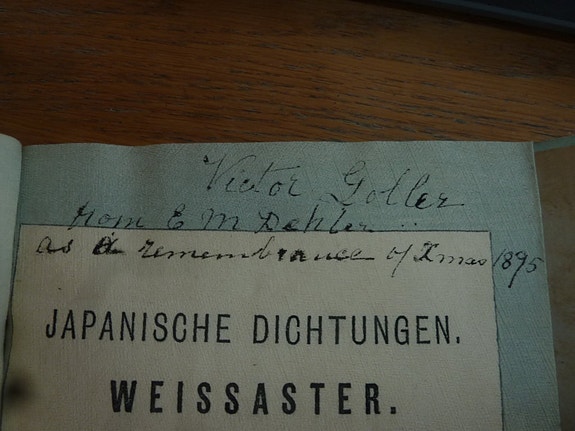 Victor Goller
from E M Dehler
as a remembrance of Xmas 1895
JAPANISCHE DICHTUNGEN.
WEISSASTER.